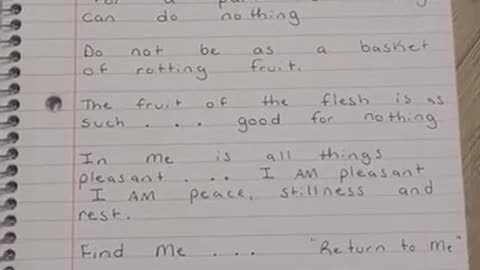 can do nothing
Do not be as a basket
of rotting fruit.
The fruit of the flesh is as
such . . . good for nothing
In me is all things
pleasant . . . I AM pleasant
I AM peace, stillness and
rest.
Find Me . . . "Return to Me"